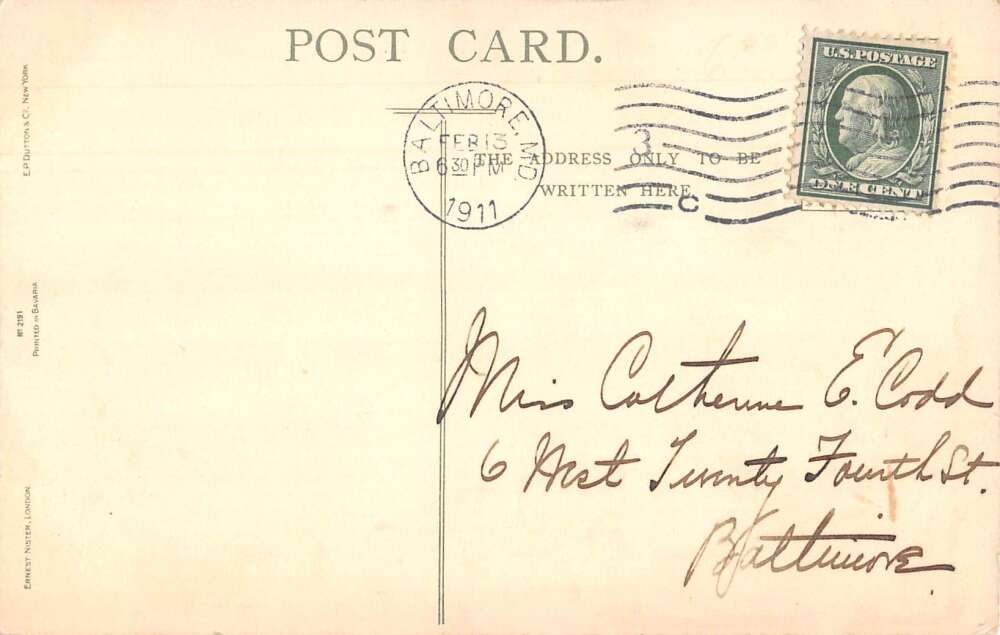 POST CARD.
U.S. POSTAGE
ONE CENT
BALTIMORE, MD.
FEB 13
6 30 PM
1911
3
C
THE ADDRESS ONLY TO BE
WRITTEN HERE
Miss Catherine E. Codd
6 West Twenty Fourth St.
Baltimore
E. P. DUTTON & Co. NEW YORK
No 2191
PRINTED IN BAVARIA
ERNEST NISTER, LONDON